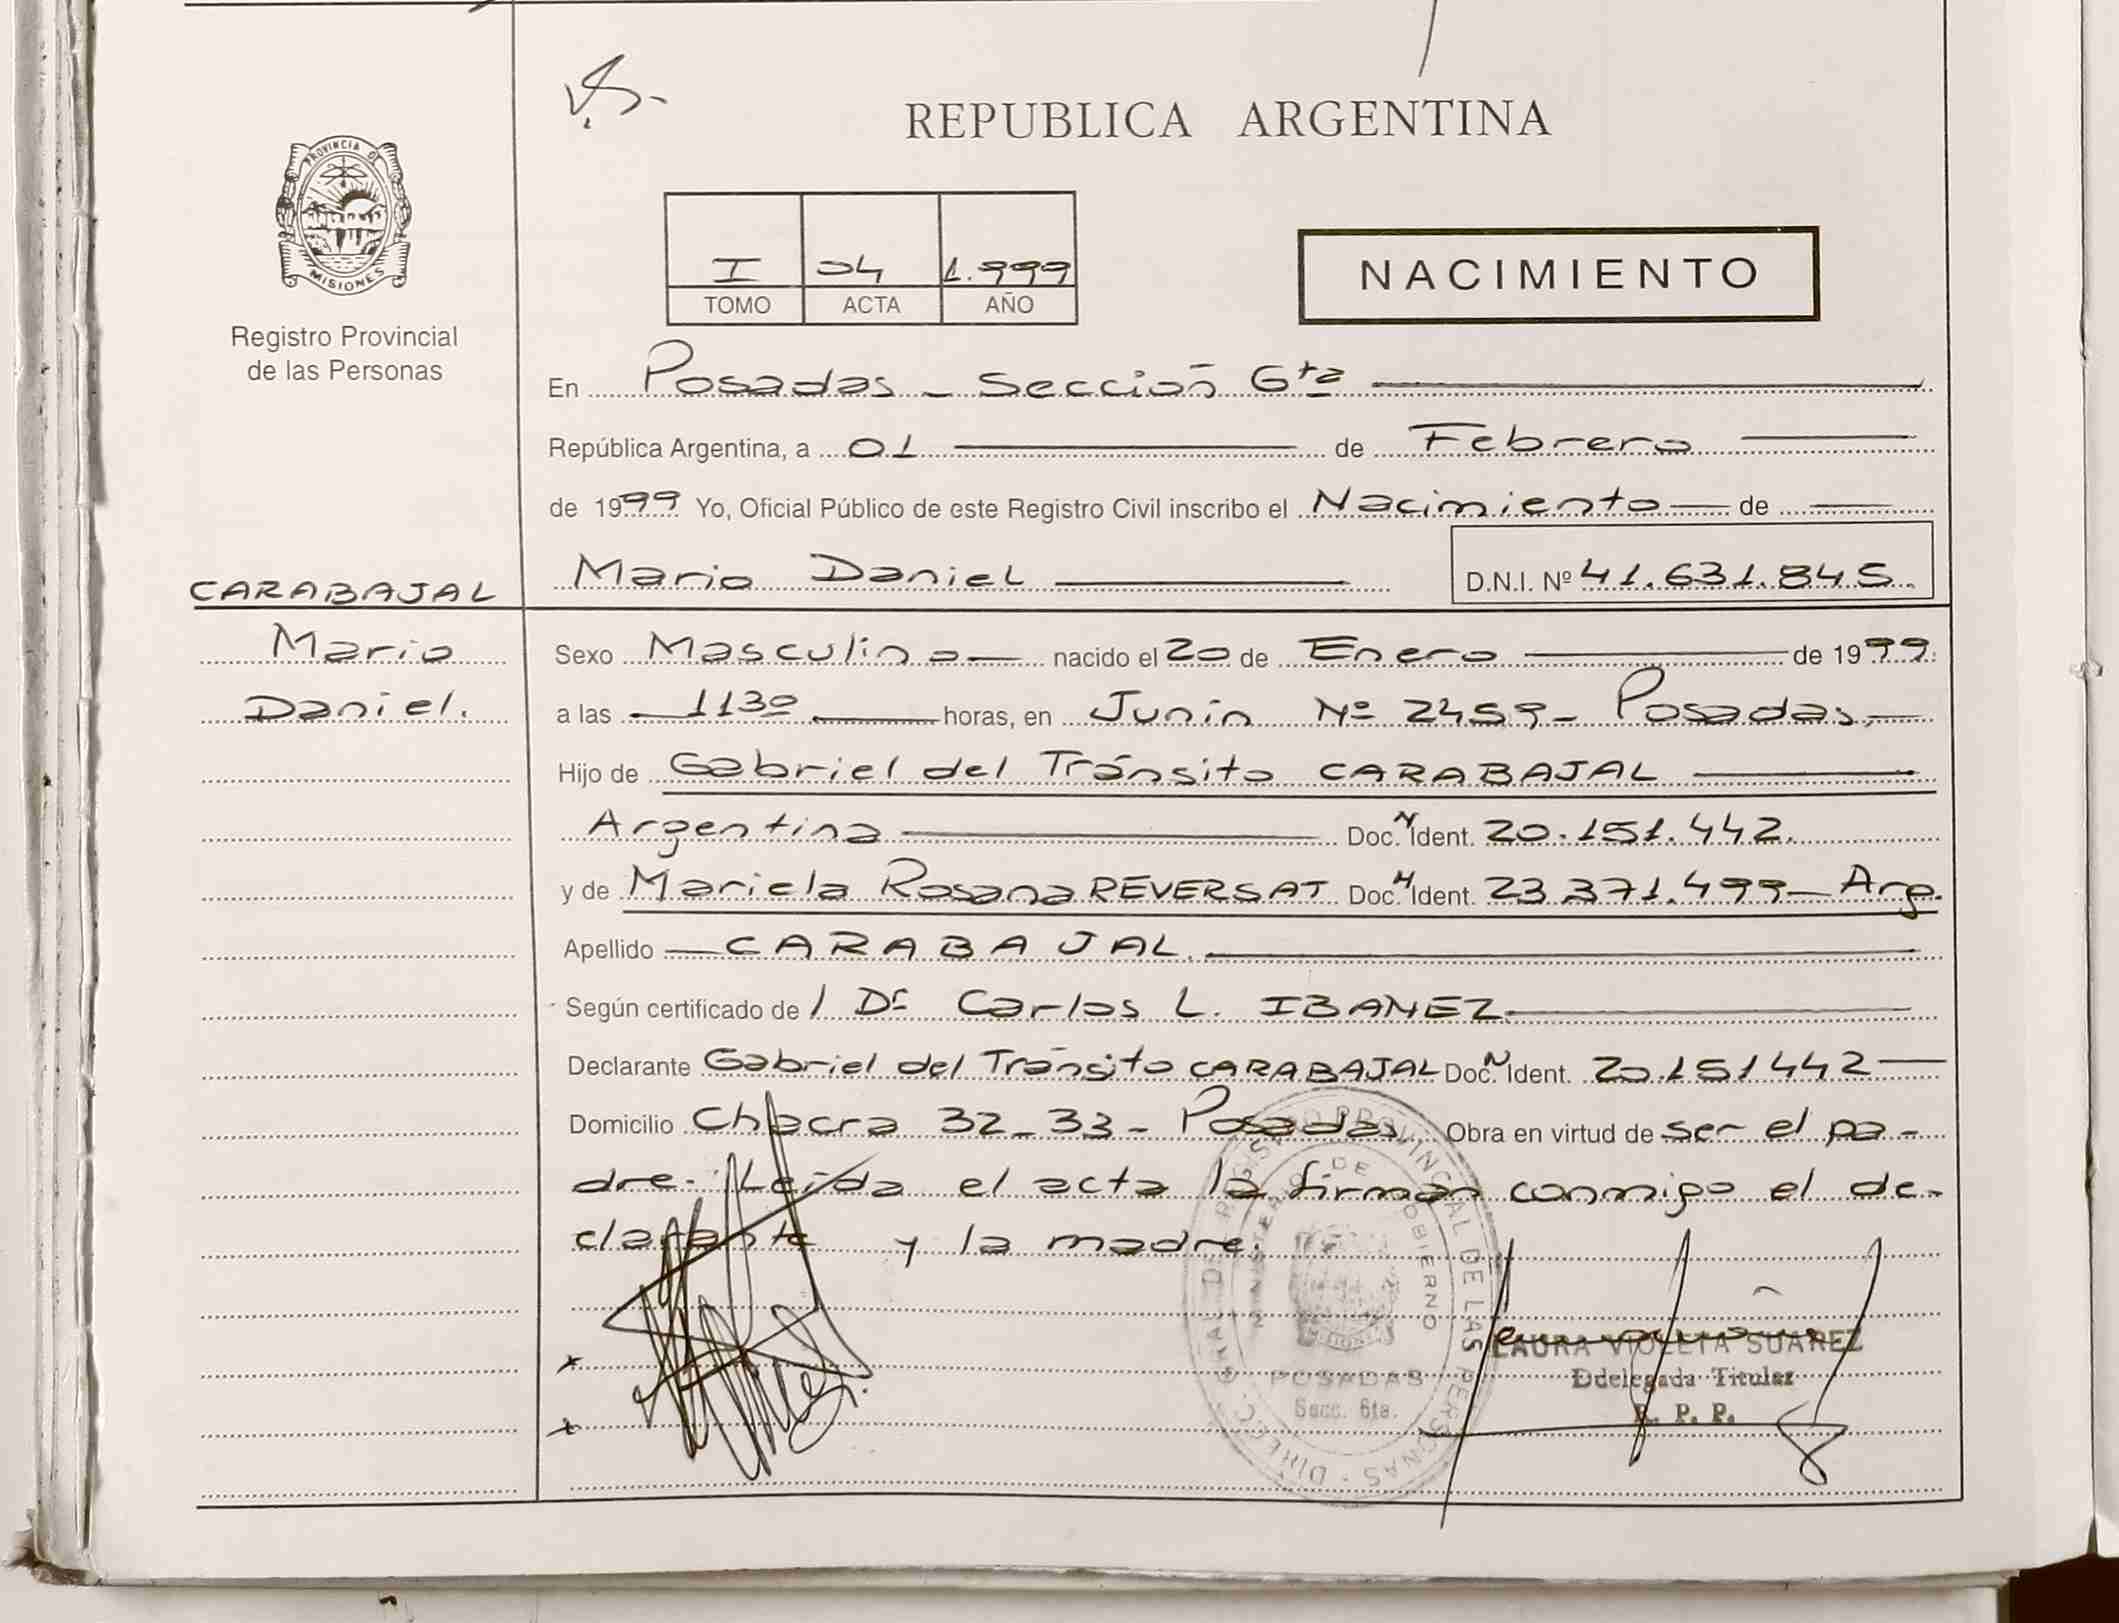 REPUBLICA ARGENTINA
PROVINCIA DE
MISIONES
Registro Provincial
de las Personas
I 04 1.999
TOMO ACTA AÑO
NACIMIENTO
En Posadas - Sección 6ta
República Argentina, a 01 de Febrero
de 1999 Yo, Oficial Público de este Registro Civil inscribo el Nacimiento de
Mario Daniel D.N.I. Nº 41.631.845
CARABAJAL
Mario
Daniel.
Sexo Masculino nacido el 20 de Enero de 1999
a las 1130 horas, en Junín Nº 2459- Posadas,
Hijo de Gabriel del Tránsito CARABAJAL
Argentina Doc. N Ident. 20.151.442.
y de Mariela Rosana REVERSAT Doc. N Ident. 23.371.499- Arg.
Apellido CARABAJAL.
Según certificado de / Dr Carlos L. IBANEZ.
Declarante Gabriel del Tránsito CARABAJAL Doc. N Ident. 20.151442
Domicilio Chacra 32-33- Posadas, Obra en virtud de ser el pa-
dre. Leída el acta la firman conmigo el de-
clarante y la madre.
DIRECC. GRAL DE REGISTRO PROVINCIAL DE LAS PERSONAS
MINISTERIO DE GOBIERNO
MISIONES
POSADAS
Secc. 6ta.
LAURA VIOLETA SUAREZ
Ddelegada Titular
R. P. P.